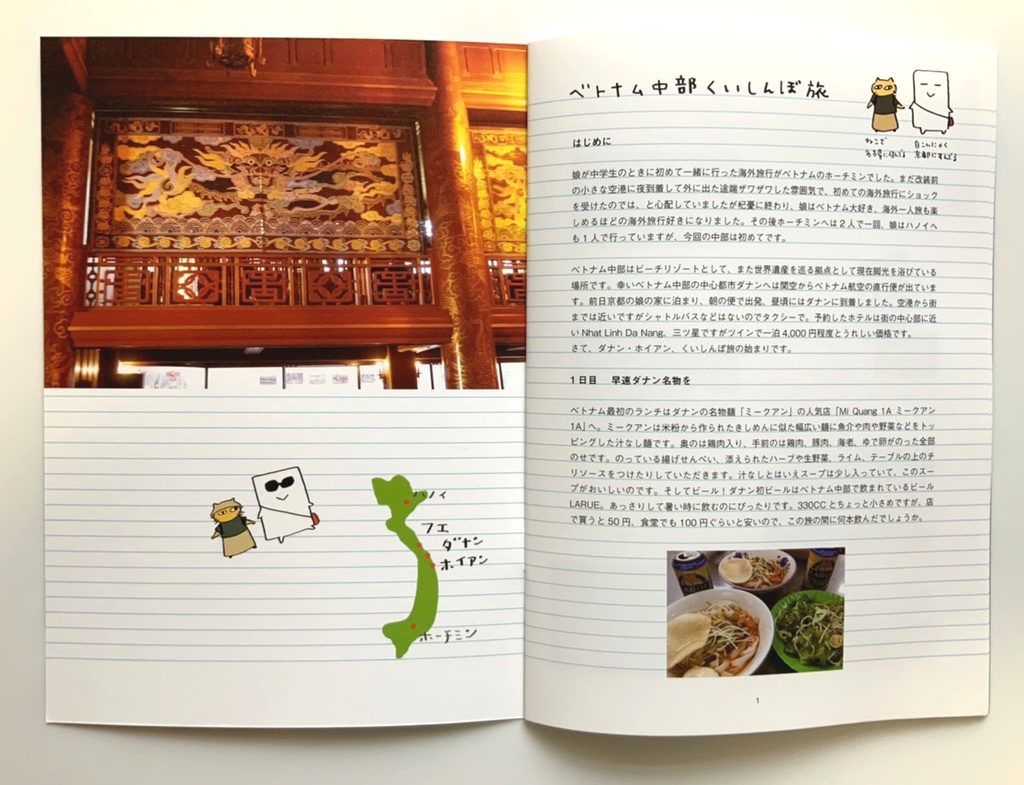 ハノイ
フエ
ダナン
ホイアン
ホーチミン
ベトナム中部くいしんぼ旅
ねこで 白こんにゃく
京都にすんでる
はじめに
娘が中学生のときに初めて一緒に行った海外旅行がベトナムのホーチミンでした。まだ改装前
の小さな空港に夜到着して外に出た途端ザワザワした雰囲気で、初めての海外旅行にショック
を受けたのでは、と心配していましたが杞憂に終わり、娘はベトナム大好き、海外一人旅も楽
しめるほどの海外旅行好きになりました。その後ホーチミンへは2人で一回、娘はハノイへ
も1人で行っていますが、今回の中部は初めてです。
ベトナム中部はビーチリゾートとして、また世界遺産を巡る拠点として現在脚光を浴びている
場所です。幸いベトナム中部の中心都市ダナンへは関空からベトナム航空の直行便が出ていま
す。前日京都の娘の家に泊まり、朝の便で出発、昼頃にはダナンに到着しました。空港から街
までは近いですがシャトルバスなどはないのでタクシーで。予約したホテルは街の中心部に近
い Nhat Linh Da Nang、三ツ星ですがツインで一泊 4,000 円程度とうれしい価格です。
さて、ダナン・ホイアン、くいしんぼ旅の始まりです。
1日目 早速ダナン名物を
ベトナム最初のランチはダナンの名物麺「ミークアン」の人気店「Mi Quang 1A ミークアン
1A」へ。ミークアンは米粉から作られたきしめんに似た幅広い麺に魚介や肉や野菜などをトッ
ピングした汁なし麺です。奥のは鶏肉入り、手前のは鶏肉、豚肉、海老、ゆで卵がのった全部
のせです。のっている揚げせんべい、添えられたハーブや生野菜、ライム、テーブルの上のチ
リソースをつけたりしていただきます。汁なしとはいえスープは少し入っていて、このスー
プがおいしいのです。そしてビール！ダナン初ビールはベトナム中部で飲まれているビール
LARUE。あっさりして暑い時に飲むのにぴったりです。330CC とちょっと小さめですが、店
で買うと 50 円、食堂でも 100 円ぐらいと安いので、この旅の間に何本飲んだでしょうか。
1